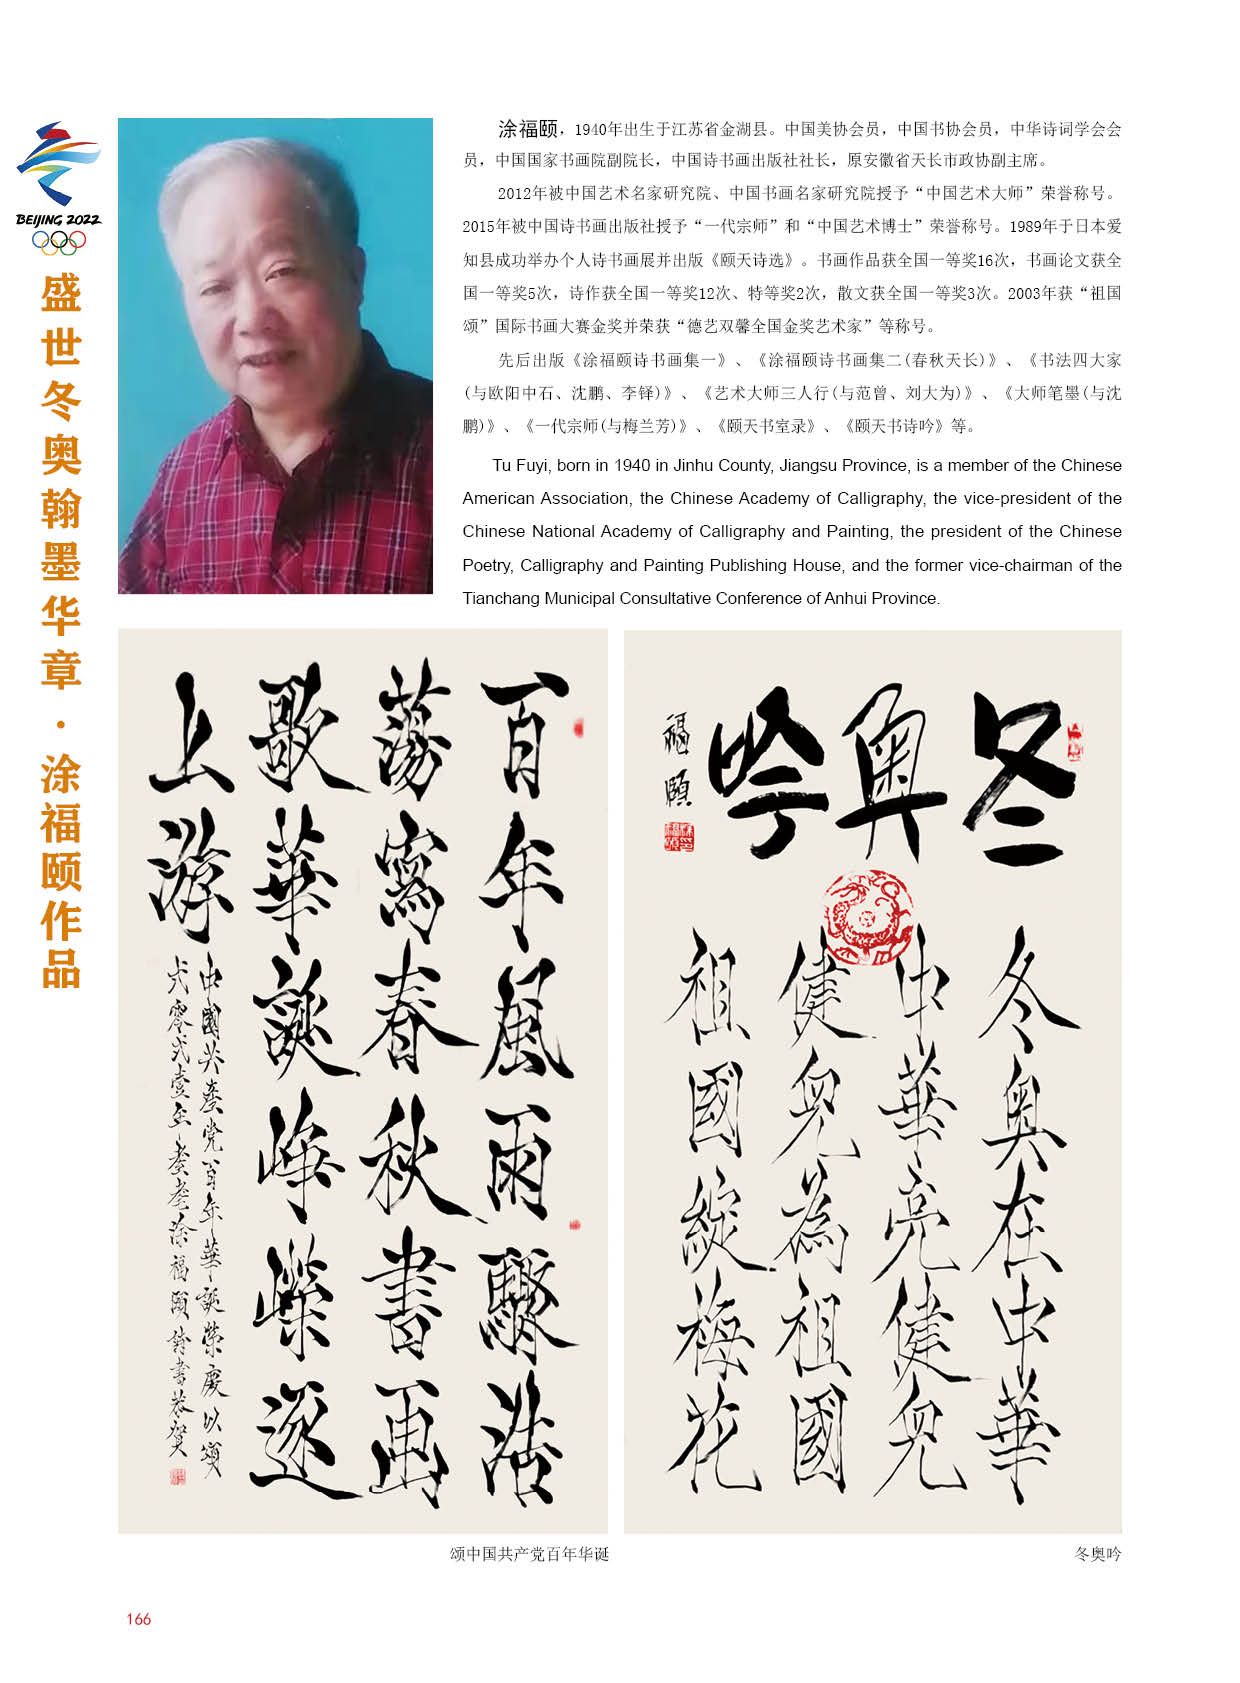 BEIJING 2022
盛世冬奥翰墨华章·涂福颐作品
涂福颐，1940年出生于江苏省金湖县。中国美协会员，中国书协会员，中华诗词学会会
员，中国国家书画院副院长，中国诗书画出版社社长，原安徽省天长市政协副主席。
2012年被中国艺术名家研究院、中国书画名家研究院授予“中国艺术大师”荣誉称号。
2015年被中国诗书画出版社授予“一代宗师”和“中国艺术博士”荣誉称号。1989年于日本爱
知县成功举办个人诗书画展并出版《颐天诗选》。书画作品获全国一等奖16次，书画论文获全
国一等奖5次，诗作获全国一等奖12次、特等奖2次，散文获全国一等奖3次。2003年获“祖国
颂”国际书画大赛金奖并荣获“德艺双馨全国金奖艺术家”等称号。
先后出版《涂福颐诗书画集一》、《涂福颐诗书画集二(春秋天长)》、《书法四大家
(与欧阳中石、沈鹏、李铎)》、《艺术大师三人行(与范曾、刘大为)》、《大师笔墨(与沈
鹏)》、《一代宗师(与梅兰芳)》、《颐天书室录》、《颐天书诗吟》等。
Tu Fuyi, born in 1940 in Jinhu County, Jiangsu Province, is a member of the Chinese
American Association, the Chinese Academy of Calligraphy, the vice-president of the
Chinese National Academy of Calligraphy and Painting, the president of the Chinese
Poetry, Calligraphy and Painting Publishing House, and the former vice-chairman of the
Tianchang Municipal Consultative Conference of Anhui Province.
百年風雨驟浩
蕩寫春秋書畫
歌華誕崢嶸逐
上游
中國共產黨百年華誕榮慶以頌
弍零弍壹年耄耋涂福頤詩書恭賀
颂中国共产党百年华诞
冬奥吟
福頤
冬奥在中華
中華亮健兒
健兒為祖國
祖國綻梅花
冬奥吟
166